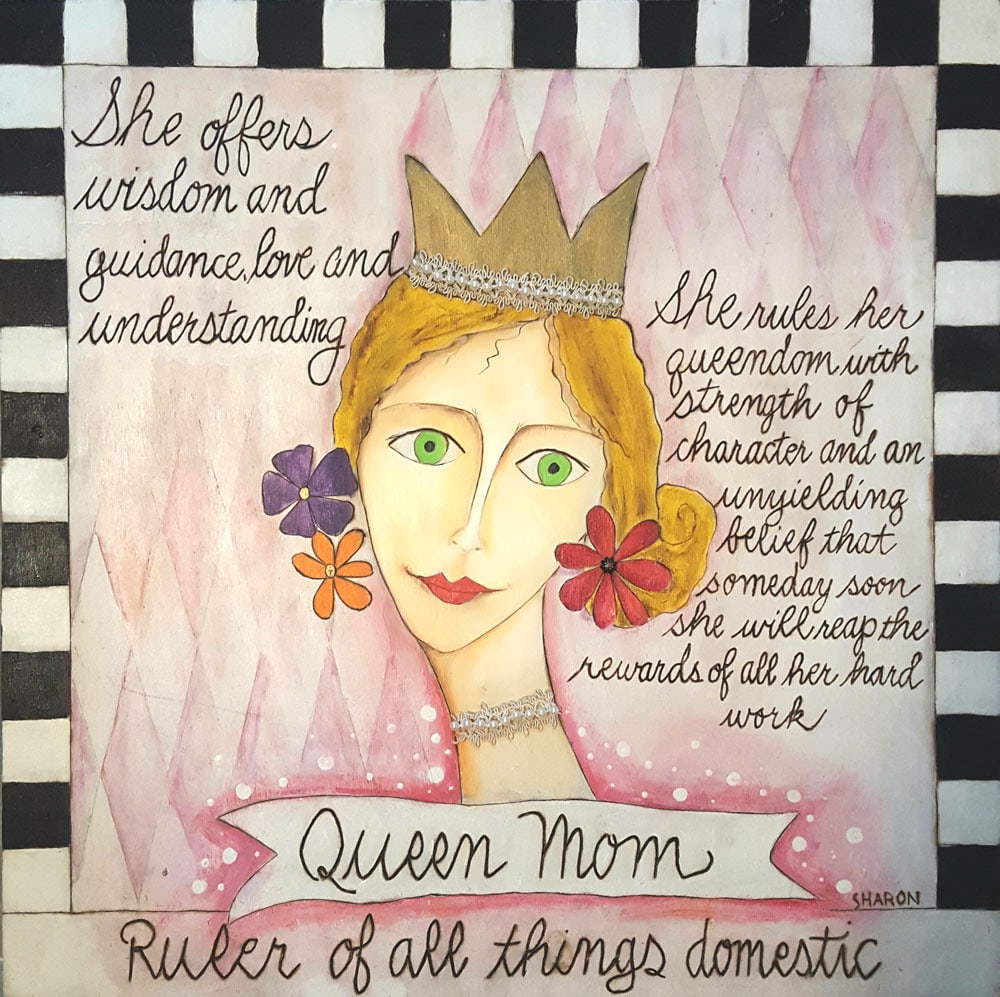 She offers
wisdom and
guidance, love and
understanding
She rules her
queendom with
strength of
character and an
unyielding
belief that
someday soon
she will reap the
rewards of all her hard
work
Queen Mom
SHARON
Ruler of all things domestic